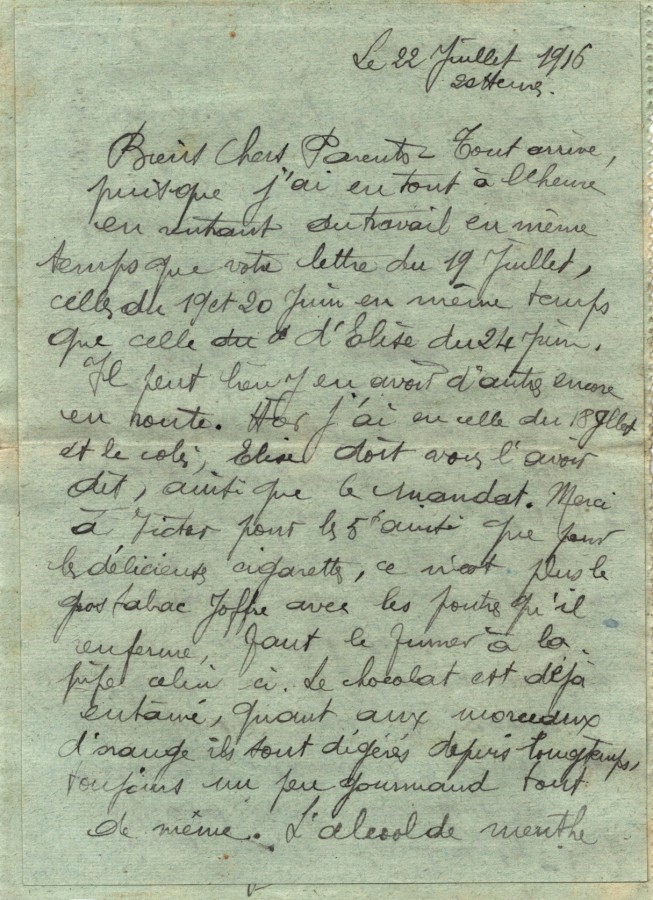 Le 22 Juillet 1916
20 Heures.
Biens Chers Parents - Tout arrive,
puisque j'ai eu tout à l'heure
en rentrant du travail en même
temps que votre lettre du 19 Juillet,
celles du 19 et 20 Juin en même temps
que celle du d'Elise du 24 Juin.
Il peut bien y en avoir d'autres encore
en route. Hier j'ai eu celle du 18 Jllet
et le colis, Elise doit vous l'avoir
dit, ainsi que le mandat. Merci
à Victor pour les 5f ainsi que pour
les délicieuses cigarettes, ce n'est plus le
gros tabac Joffre avec les poutres qu'il
renferme, faut le fumer à la
pipe celui ci. Le chocolat est déjà
entamé, quant aux morceaux
d'orange ils sont digérés depuis longtemps,
toujours un peu gourmand tout
de même. L'alcool de menthe